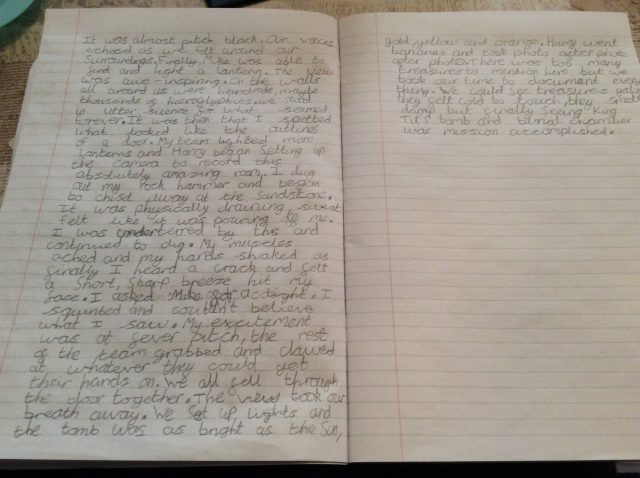 It was almost pitch black. Our voices
echoed as we felt around our
surroundings. Finally, Mike was able to
find and light a lantern. The view
was awe-inspiring. On the walls
all around us were hundreds, maybe
thousands of hieroglyphics. We stood
in utter silence for what seemed
forever. It was then that I spotted
what looked like the outlines
of a door. My team lighted more
lanterns and Harry began setting up
the camera to record this
absolutely amazing room. I dug
out my rock hammer and began
to chisel away at the sandstone.
It was physically draining, sweat
felt like it was pouring off me.
I was undeterred by this and
continued to dig. My muscles
ached and my hands shaked as
finally I heard a crack and felt
a short, sharp breeze hit my
face. I asked Mike for a light. I
squinted and couldn't believe
what I saw. My excitement
was at fever pitch, the rest
of the team grabbed and clawed
at whatever they could get
their hands on. We all fell through
the door together. The view took our
breath away. We set up lights and
the tomb was as bright as the sun,
gold, yellow and orange. Harry went
bananas and took photo after photo
after photo. There was too many
treasures to mention here but we
took our time to document every
thing. We could see treasures galore
they felt cold to touch, they smelt
damp but finally seeing King
Tut's tomb and burial chamber
was mission accomplished.